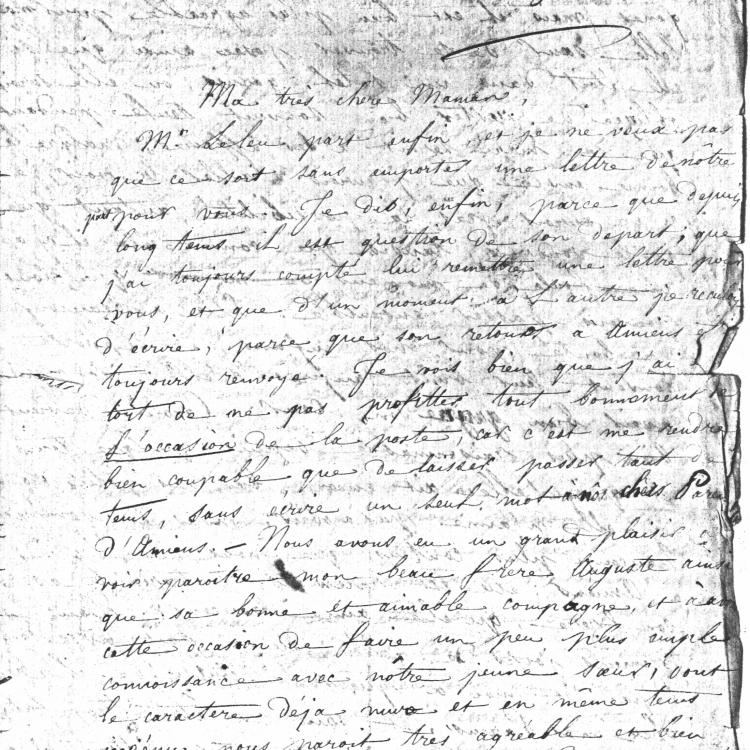 Ma très chere Maman,
Mr. Leleu part enfin, et je ne veux pas
que ce soit sans emporter une lettre de nôtre
part pour vous. Je dis, enfin, parce que depuis
long tems il est question de son depart; que
j'ai toujours compté lui remettre une lettre pour
vous, et que d'un moment à l'autre je
d'écrire, parce que son retour à Amiens
toujours renvoyé. Je vois bien que j'ai
tort de ne pas profitter tout bonnement de
l'occasion de la poste, car c'est me rendre
bien coupable que de laisser passer tant de
tems, sans écrire un seul mot à nos chers Paren
d'Amiens. — Nous avons eu un grand plaisir à
voir paroitre mon beau frere Auguste ains
que sa bonne et aimable compagne, et à
cette occasion de faire un peu plus ample
connoissance avec nôtre jeune sœur, dont
le caractere déja mure et en même tems
nous paroit très agréable et bien